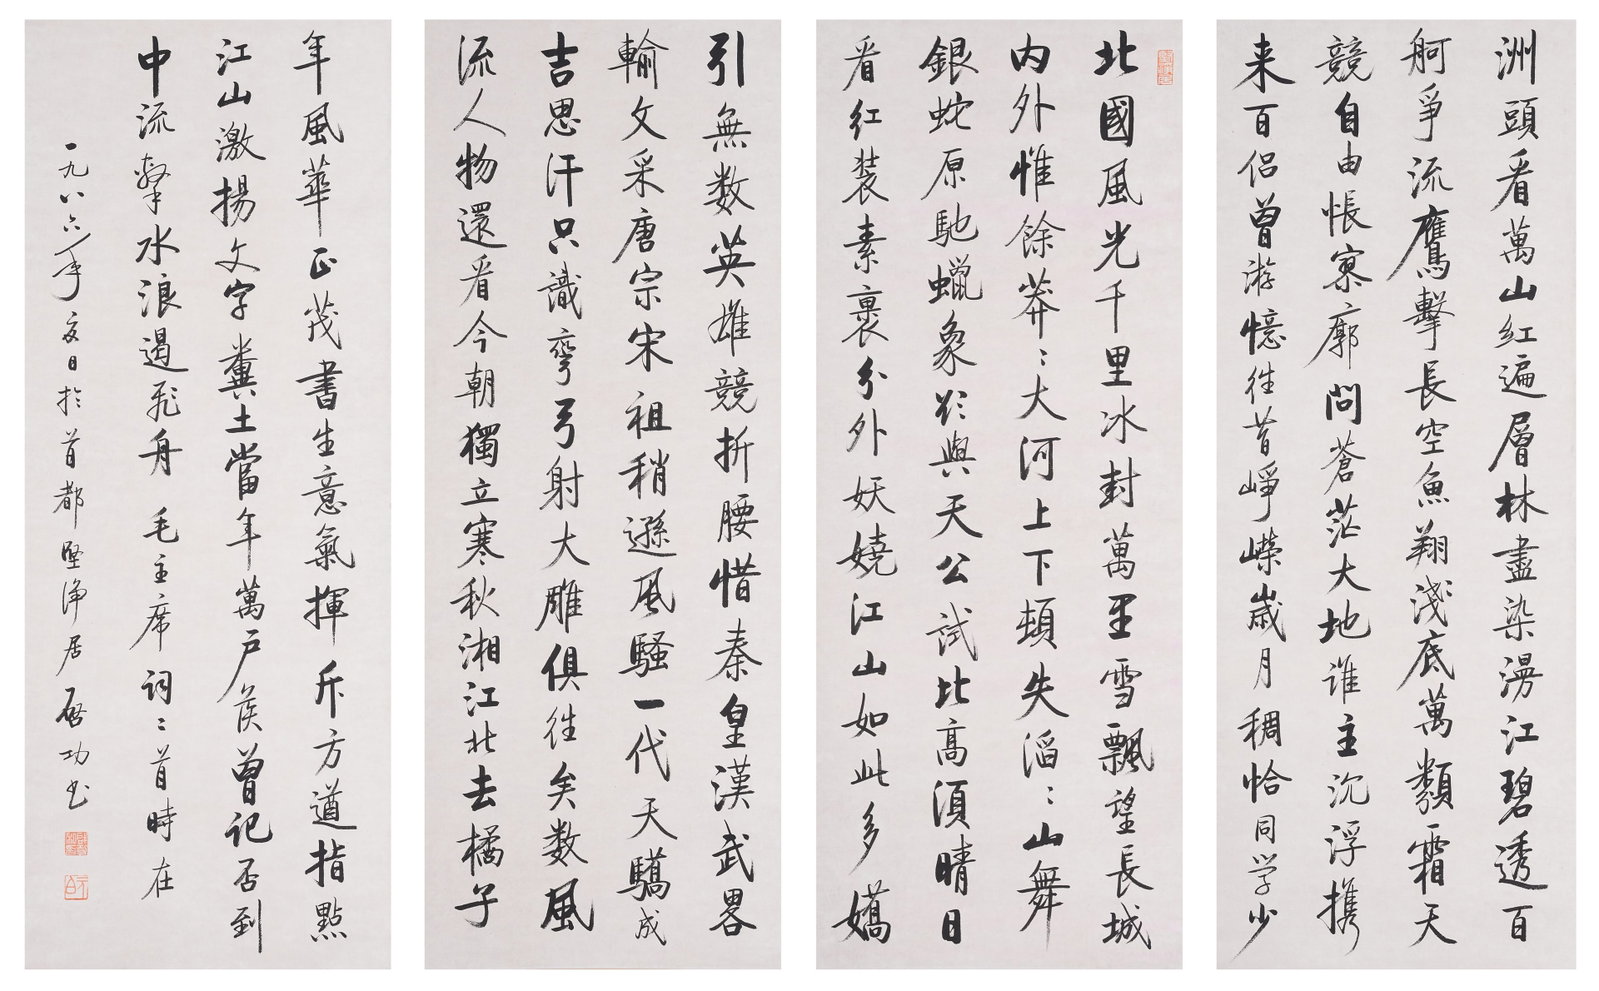 洲頭看萬山红遍層林盡染漫江碧透百
舸爭流鷹擊長空魚翔淺底萬類霜天
競自由悵寥廓問蒼茫大地谁主沉浮携
来百侣曾游憶往昔崢嶸歲月稠恰同学少
北國風光千里冰封萬里雪飄望長城
内外惟餘莽〻大河上下頓失滔〻山舞
銀蛇原馳蠟象欲與天公試比高須晴日
看红装素裹分外妖嬈江山如此多嬌
引無数英雄競折腰惜秦皇漢武畧
輸文采唐宗宋祖稍遜風騷一代天驕成
吉思汗只識彎弓射大雕俱往矣数風
流人物還看今朝獨立寒秋湘江北去橘子
年風華正茂書生意氣揮斥方遒指點
江山激揚文字糞土當年萬户侯曾记否到
中流擊水浪遏飛舟 毛主席词二首時在
一九八六年夏日於首都堅净居启功书